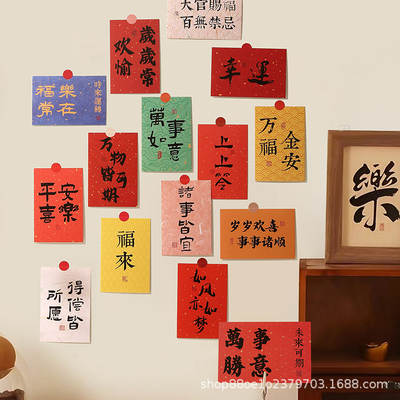 天官賜福
百無禁忌
歲歲常
欢愉
幸運
時來運轉
樂在
福常
萬事
如意
金安
万福
上上签
万物
皆可期
平安
喜樂
諸事皆宜
福來
岁岁欢喜
事事諸顺
樂
得偿皆
所愿
如风
亦如梦
萬事
勝意
未來可期
shop88oe1o2379703.1688.com